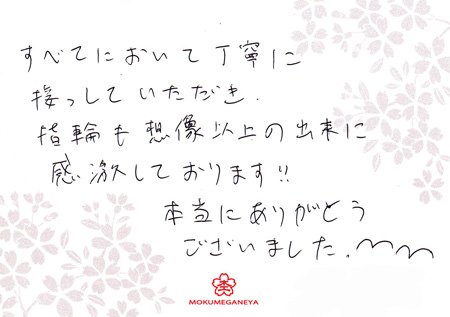 すべてにおいて丁寧に
接っしていただき.
指輪も想像以上の出来に
感激しております!!
本当にありがとう
ございました.
MOKUMEGANEYA